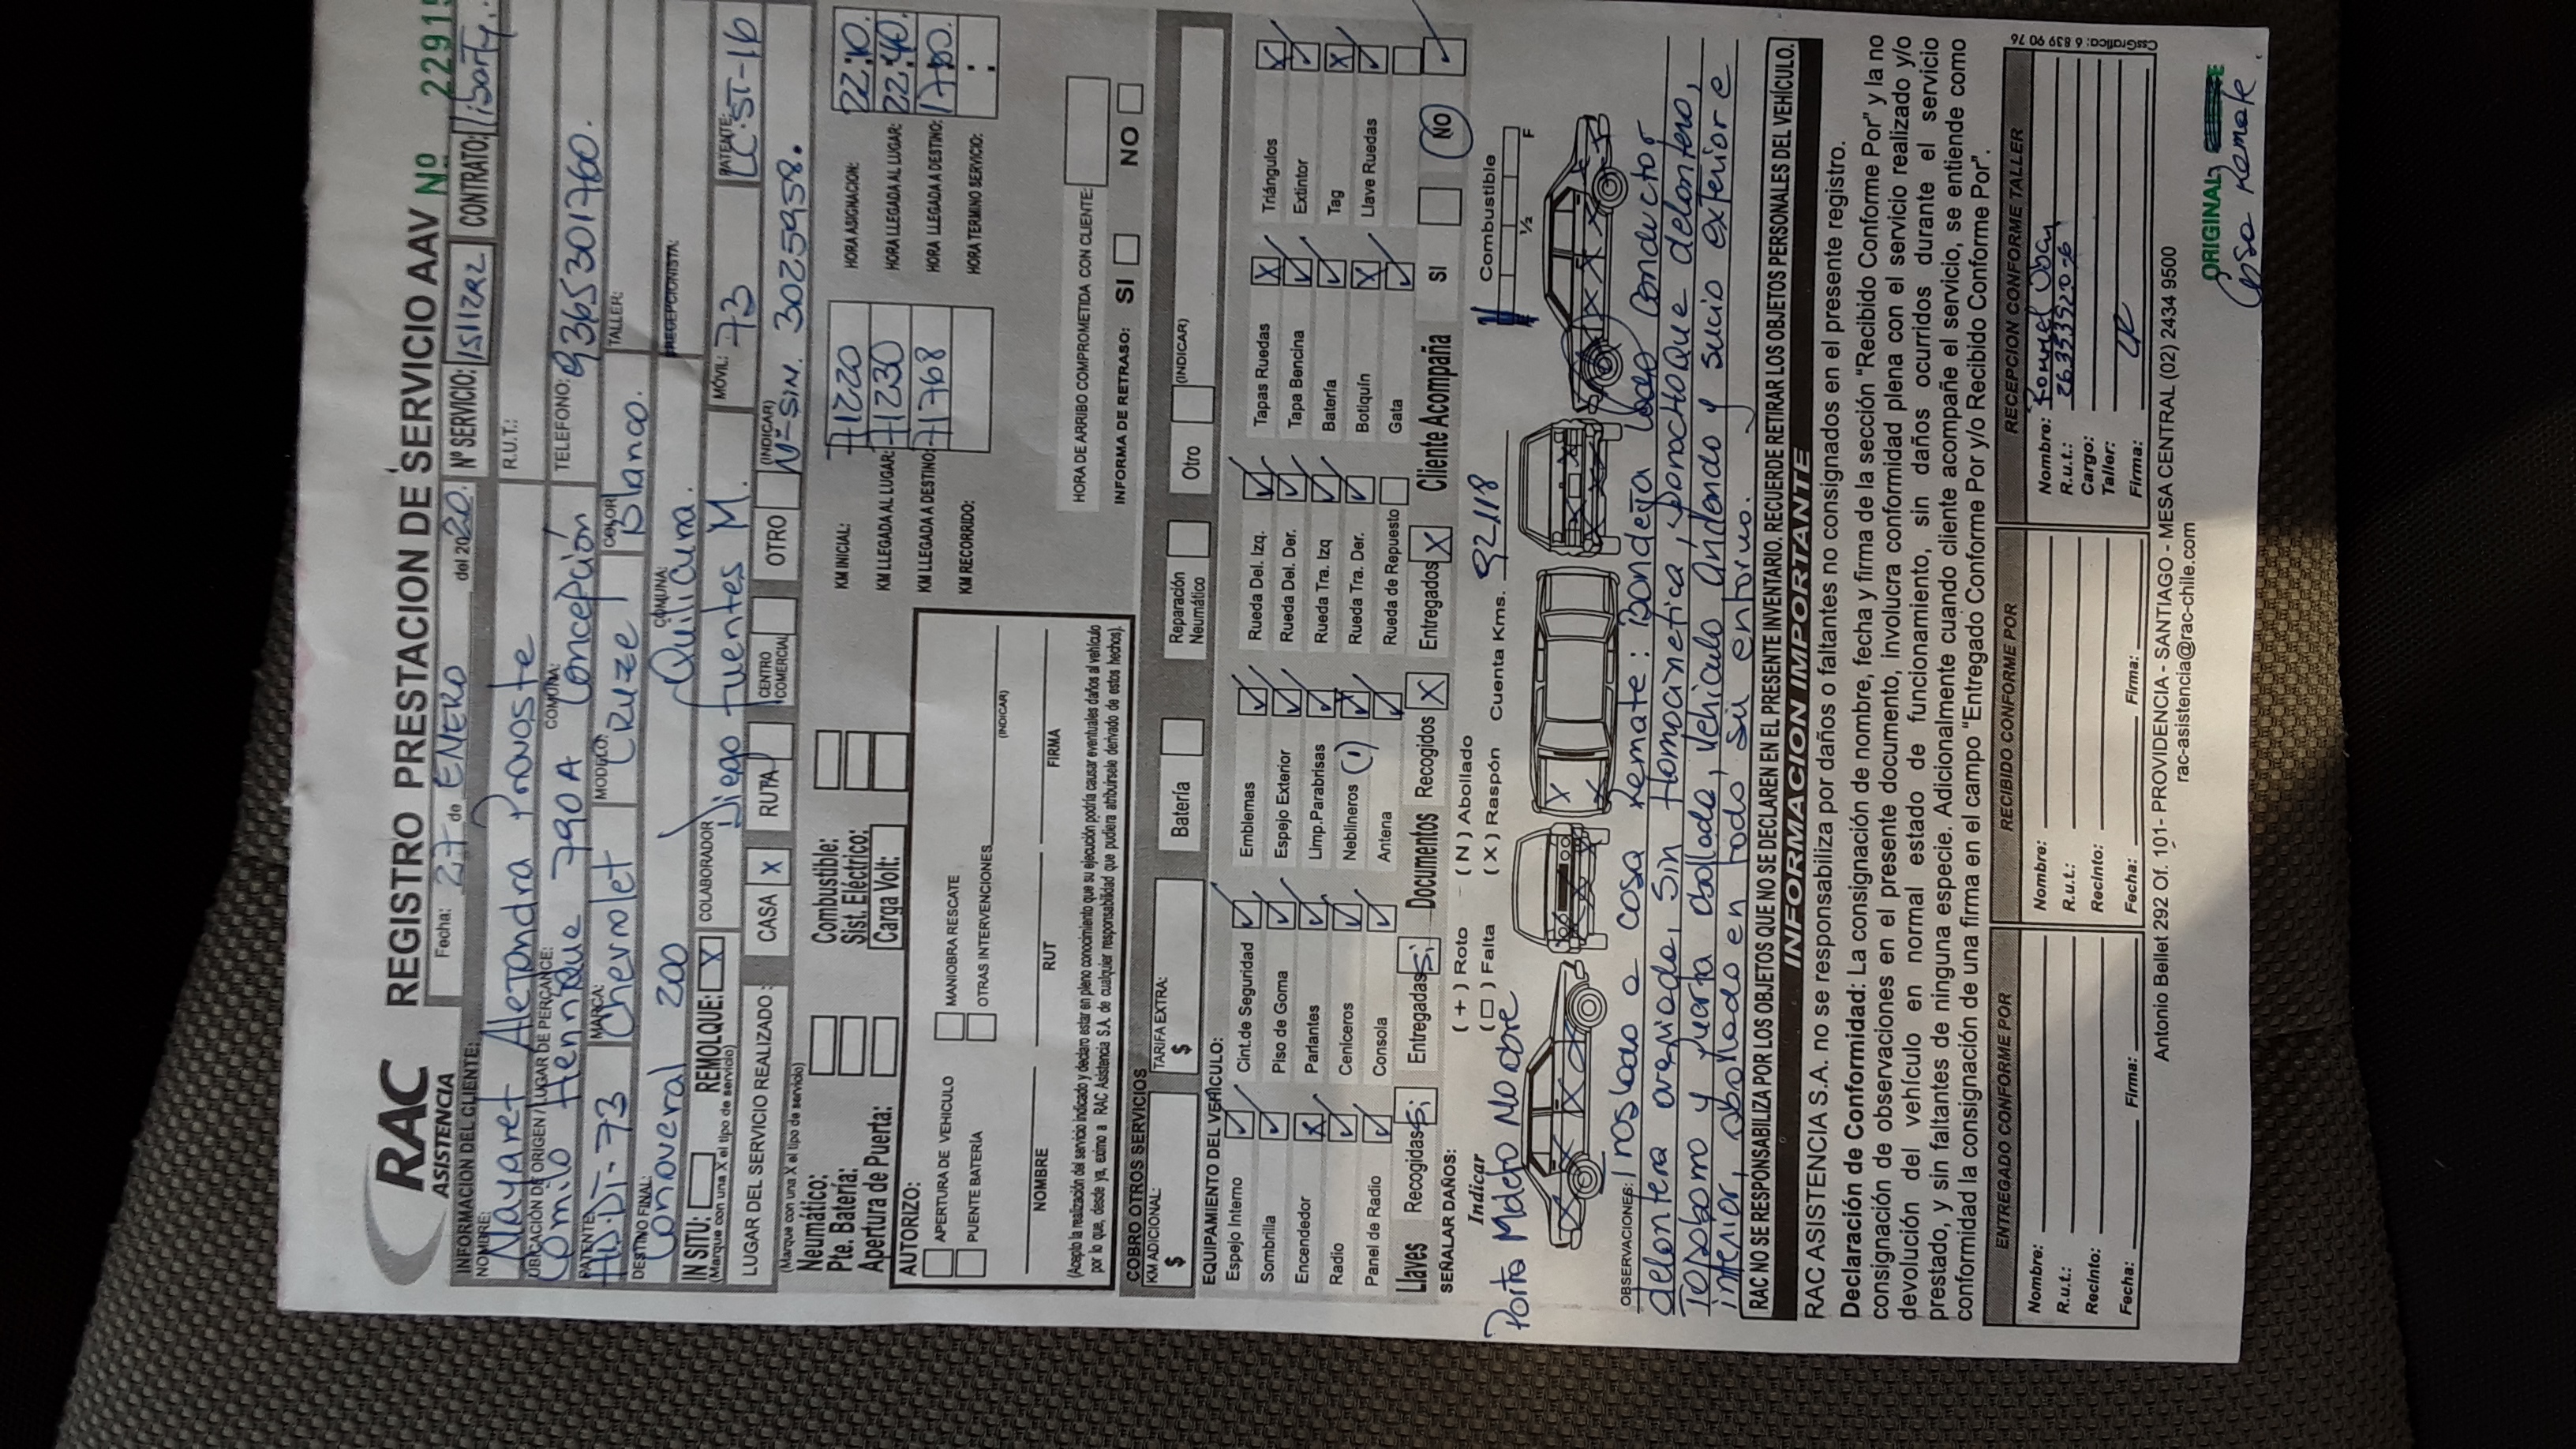 RAC
ASISTENCIA
REGISTRO PRESTACION DE SERVICIO AAV Nº 2291
Fecha: 27 de ENERO del 2020. Nº SERVICIO: CONTRATO:
INFORMACION DEL CLIENTE:
NOMBRE: Nayaret Alejandra Pronoste R.U.T.:
UBICACIÓN DE ORIGEN / LUGAR DE PERCANCE: Camilo Henríquez 790 A COMUNA: Concepción TELEFONO: 936530 1760.
PATENTE: MARCA: Chevrolet MODELO: Cruze COLOR: Blanco. TALLER:
DESTINO FINAL: 200 COMUNA: Quilicura. RECEPCIONISTA:
IN SITU: REMOLQUE: X COLABORADOR Diego Fuentes M. MÓVIL: 73 PATENTE:
(Marque con una X el tipo de servicio)
LUGAR DEL SERVICIO REALIZADO: CASA X RUTA CENTRO COMERCIAL OTRO (INDICAR) Nº SIN. 3025958.
(Marque con una X el tipo de servicio)
Neumático: Combustible: KM INICIAL: 71220 HORA ASIGNACION: 22:10.
Pte. Batería: Sist. Eléctrico: KM LLEGADA AL LUGAR: 71230 HORA LLEGADA AL LUGAR: 22:40.
Apertura de Puerta: Carga Volt: KM LLEGADA A DESTINO: 71768 HORA LLEGADA A DESTINO:
KM RECORRIDO: HORA TERMINO SERVICIO: :
AUTORIZO:
APERTURA DE VEHICULO MANIOBRA RESCATE
PUENTE BATERÍA OTRAS INTERVENCIONES (INDICAR)
HORA DE ARRIBO COMPROMETIDA CON CLIENTE:
INFORMA DE RETRASO: SI NO
NOMBRE RUT FIRMA
(Acepto la realización del servicio indicado y declaro estar en pleno conocimiento que su ejecución podría causar eventuales daños al vehículo
por lo que, desde ya, eximo a RAC Asistencia S.A. de cualquier responsabilidad que pudiera atribuírsele derivado de estos hechos).
COBRO OTROS SERVICIOS
KM ADICIONAL: $ TARIFA EXTRA: $ Batería Reparación Neumático Otro (INDICAR)
EQUIPAMIENTO DEL VEHÍCULO:
Espejo Interno Cint.de Seguridad Emblemas Rueda Del. Izq. Tapas Ruedas X Triángulos X
Sombrilla Piso de Goma Espejo Exterior Rueda Del. Der. Tapa Bencina Extintor
Encendedor X Parlantes Limp.Parabrisas Rueda Tra. Izq Batería Tag X
Radio Ceniceros Neblineros (1) Rueda Tra. Der. Botiquín X Llave Ruedas
Panel de Radio Consola Antena Rueda de Repuesto Gata
Llaves Recogidas Si Entregadas Si Documentos Recogidos X Entregados X Cliente Acompaña SI NO
SEÑALAR DAÑOS:
Indicar ( + ) Roto ( N ) Abollado
( □ ) Falta ( X ) Raspón Cuenta Kms. 92118 Combustible ½ F
Porta Maleta No abre
OBSERVACIONES: Traslado a casa remate: Bandeja lado conductor
delantera averiada, sin Homocinetica, parachoque delantero,
Tapabarro y puerta abollada, Vehiculo andando y sucio exterior e
interior, abollado en todo su entorno.
RAC NO SE RESPONSABILIZA POR LOS OBJETOS QUE NO SE DECLAREN EN EL PRESENTE INVENTARIO. RECUERDE RETIRAR LOS OBJETOS PERSONALES DEL VEHÍCULO.
INFORMACION IMPORTANTE
RAC ASISTENCIA S.A. no se responsabiliza por daños o faltantes no consignados en el presente registro.
Declaración de Conformidad: La consignación de nombre, fecha y firma de la sección "Recibido Conforme Por" y la no
consignación de observaciones en el presente documento, involucra conformidad plena con el servicio realizado y/o
devolución del vehículo en normal estado de funcionamiento, sin daños ocurridos durante el servicio
prestado, y sin faltantes de ninguna especie. Adicionalmente cuando cliente acompañe el servicio, se entiende como
conformidad la consignación de una firma en el campo "Entregado Conforme Por y/o Recibido Conforme Por".
ENTREGADO CONFORME POR RECIBIDO CONFORME POR RECEPCION CONFORME TALLER
Nombre: Nombre: Nombre:
R.u.t.: R.u.t.: R.u.t.:
Recinto: Recinto: Cargo:
Taller:
Fecha: Firma: Fecha: Firma: Firma:
CssGrafica: 6 839 90 76
Antonio Bellet 292 Of. 101- PROVIDENCIA - SANTIAGO - MESA CENTRAL (02) 2434 9500
rac-asistencia@rac-chile.com
ORIGINAL
Casa Remate.